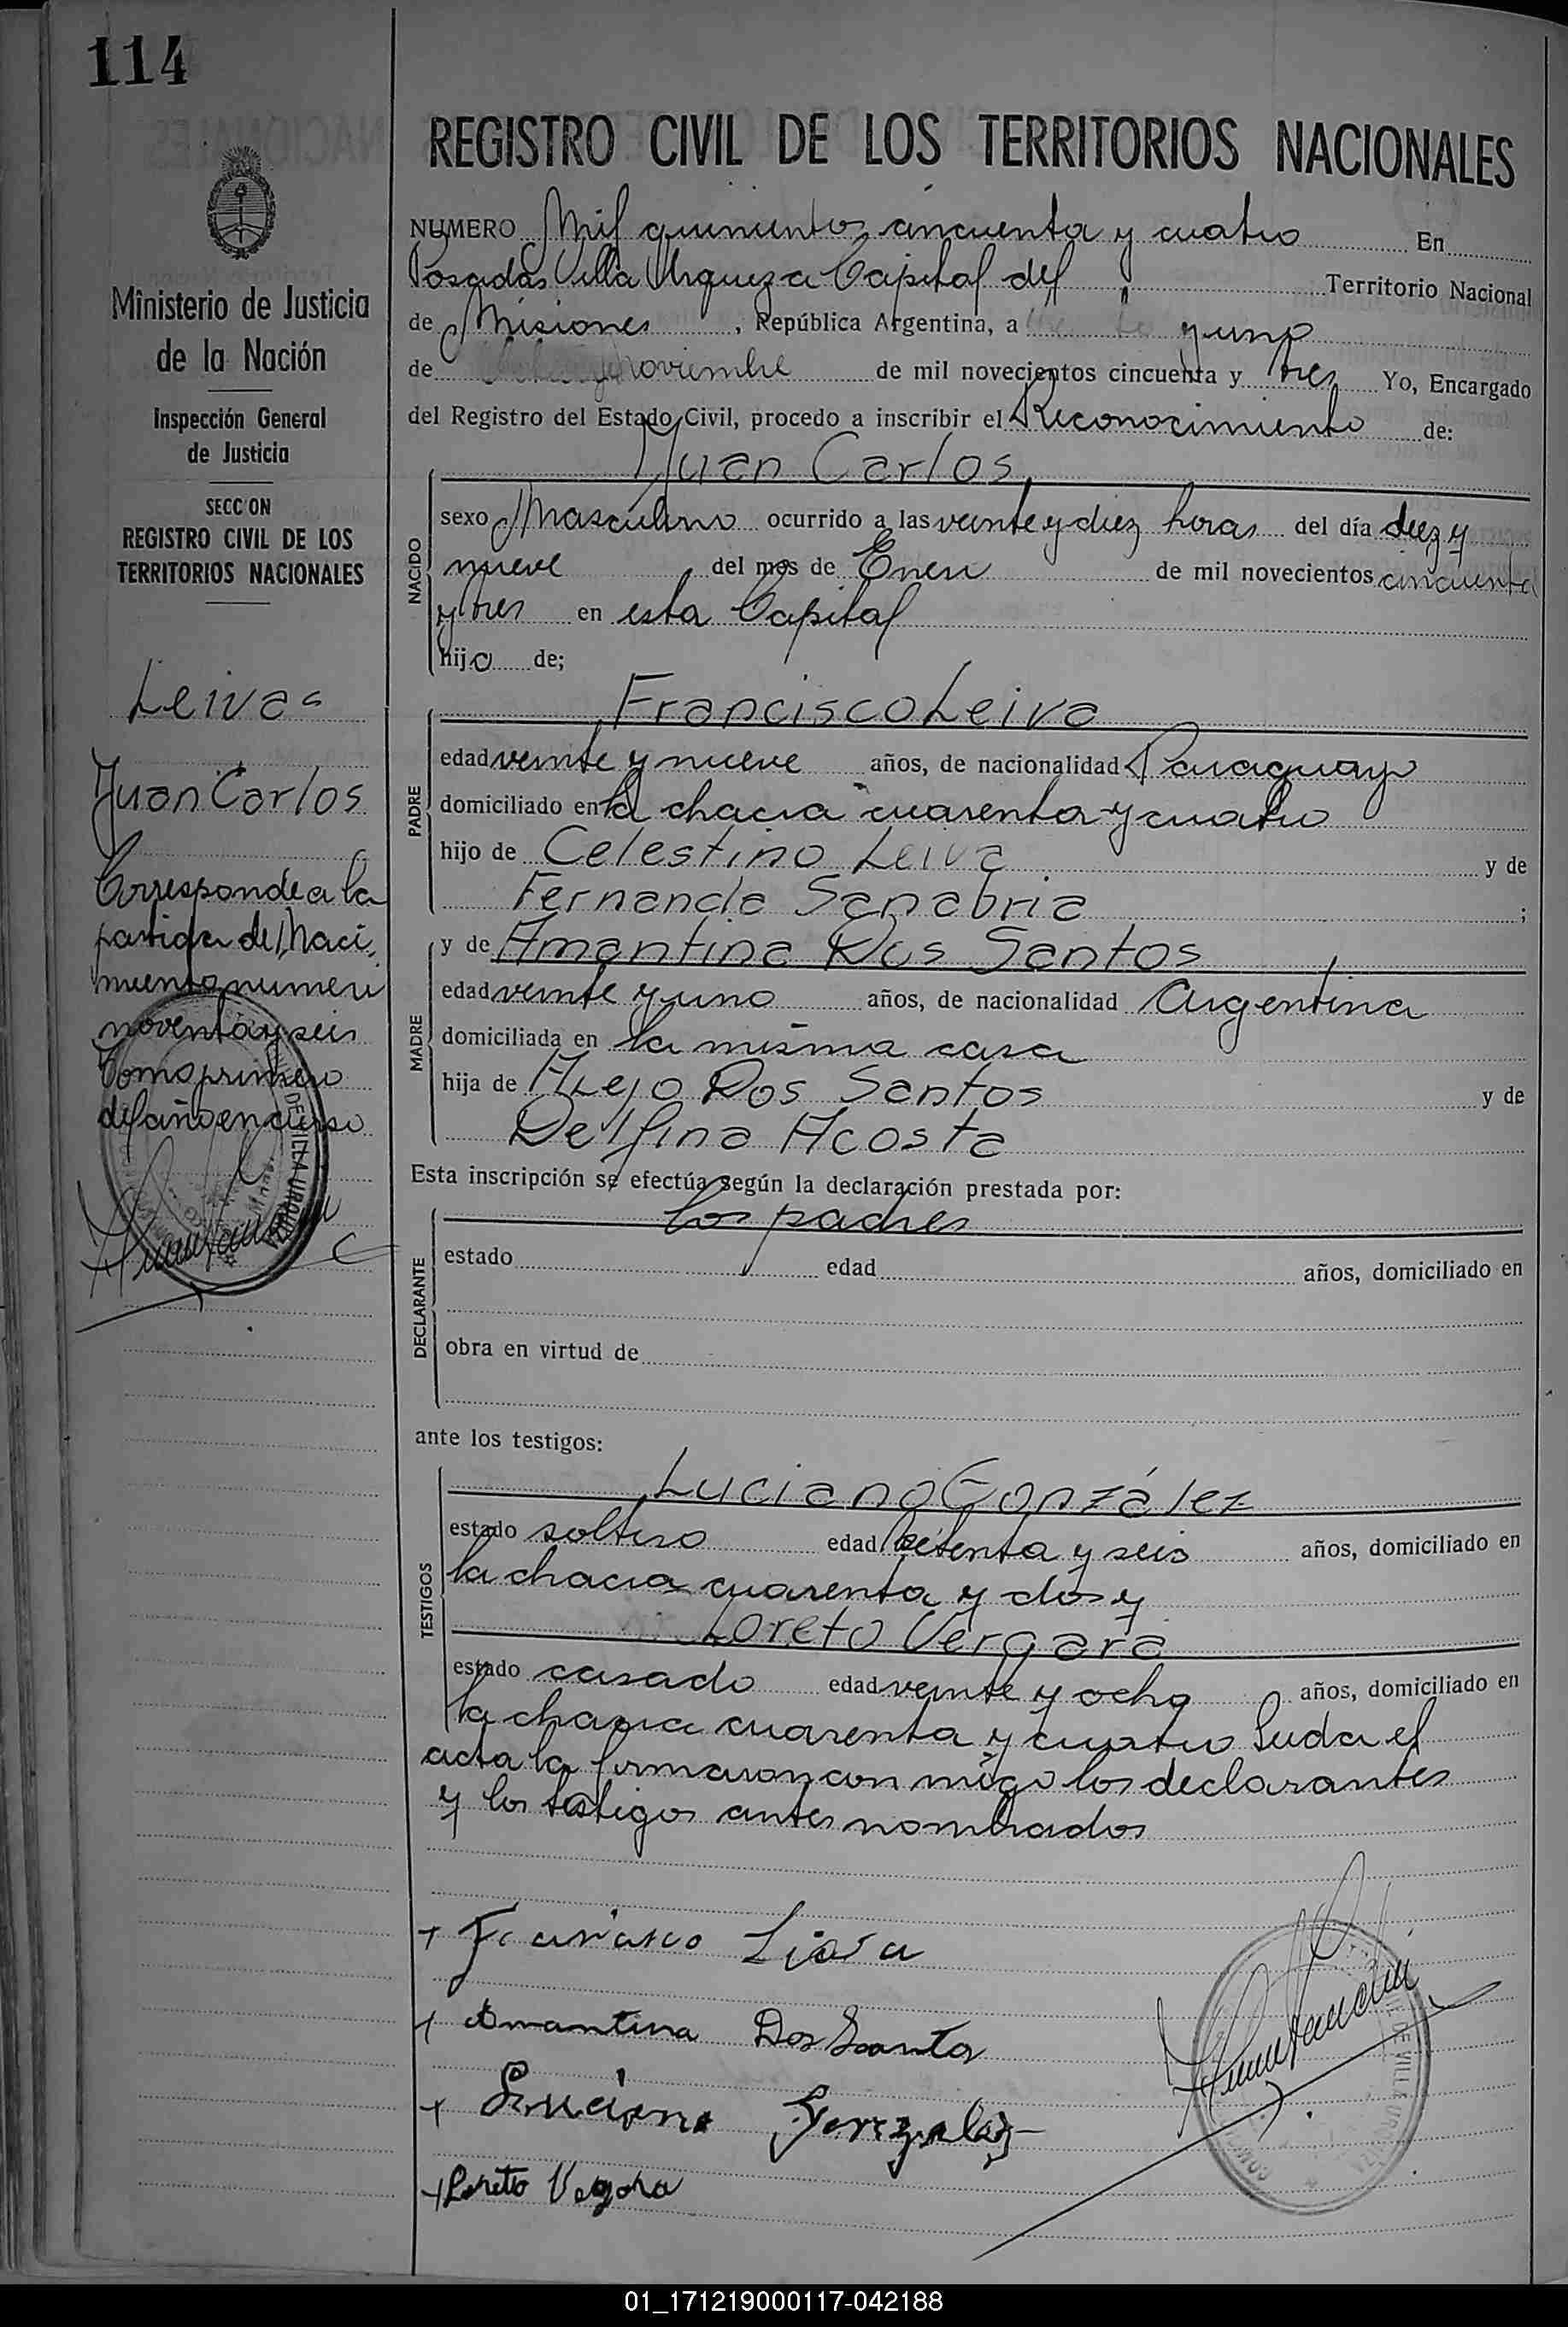 114
REGISTRO CIVIL DE LOS TERRITORIOS NACIONALES
Ministerio de Justicia
de la Nación
Inspección General
de Justicia
SECCION
REGISTRO CIVIL DE LOS
TERRITORIOS NACIONALES
Leivas
Juan Carlos
Corresponde a la
partida de Naci-
miento numero
noventa y seis
Tomo primero
del año en curso
NUMERO Mil quinientos cincuenta y cuatro En
Posadas Villa Urquiza Capital del Territorio Nacional
de Misiones, República Argentina, a y uno
de Noviembre de mil novecientos cincuenta y tres Yo, Encargado
del Registro del Estado Civil, procedo a inscribir el Reconocimiento de:
Juan Carlos
NACIDO
sexo Masculino ocurrido a las veinte y diez horas del día diez y
nueve del mes de Enero de mil novecientos cincuenta
y tres en esta Capital
hijo de;
Francisco Leiva
PADRE
edad veinte y nueve años, de nacionalidad Paraguayo
domiciliado en la chacra cuarenta y cuatro
hijo de Celestino Leiva y de
Fernanda Sanabria ;
y de Amantina Dos Santos
MADRE
edad veinte y uno años, de nacionalidad Argentina
domiciliada en la misma casa
hija de Alejo Dos Santos y de
Delfina Acosta
Esta inscripción se efectúa según la declaración prestada por:
los padres
DECLARANTE
estado edad años, domiciliado en
obra en virtud de
ante los testigos:
Luciano González
TESTIGOS
estado soltero edad setenta y seis años, domiciliado en
la chacra cuarenta y dos y
Loreto Vergara
estado casado edad veinte y ocho años, domiciliado en
la chacra cuarenta y cuatro Leida el
acta la firmaron con migo los declarantes
y los testigos antes nombrados
+ Francisco Liava
+ Amantina Dos Santos
+ Luciano Gonzalez
+ Loreto Vergara
01_171219000117-042188